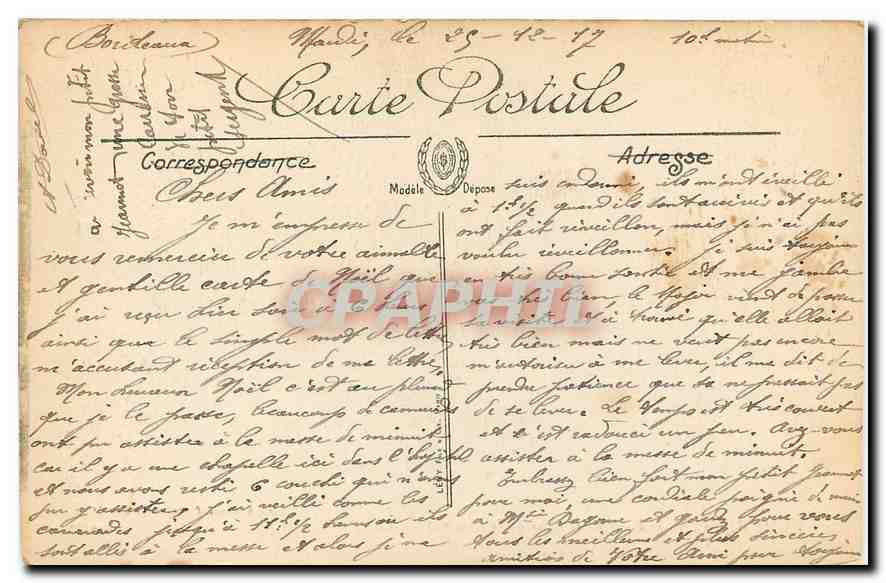 (Bordeaux) Mardi, le 25-12-17 10h matin
Carte Postale
Correspondance
Adresse
Modèle Déposé
a mon petit
Jeannot une grosse
de son
petit
Sergent
Chers Amis
Je m'empresse de
vous remercier de votre aimable
et gentille carte de Noël que
j'ai reçu hier soir à 6 heures
ainsi que le simple mot de lettre
m'accusant réception de ma lettre.
Mon Noël c'est au plumard
que je le passe, beaucoup de camarades
ont pu assister à la messe de minuit
car il y a une chapelle ici dans l'hôpital
et nous avons resté 6 couché qui n'avons
pu y assister. J'ai veillé comme les
camarades jusqu'à 11h 1/2 ils
sont allés à la messe et alors je me
suis endormi, ils m'ont éveillé
à 1h 1/2 quand ils sont arrivés et qu'ils
ont fait réveillon, mais je n'ai pas
voulu réveillonner. Je suis toujours
en très bonne santé et ma jambe
va très bien, le Major vient de passer
sa visite et a trouvé qu'elle allait
très bien mais ne veut pas encore
m'autoriser à me lever, il me dit de
prendre patience que sa ne pressait pas
de se lever. Le temps est très couvert
et s'est radouci un peu. Avez-vous
assister à la messe de minuit.
Embrassez bien fort mon petit Jeannot
pour moi une cordiale poignée de main
à et gardez pour vous
tous les meilleurs et plus sincères
amitiés de Votre Ami pour toujours
CPAPHIL